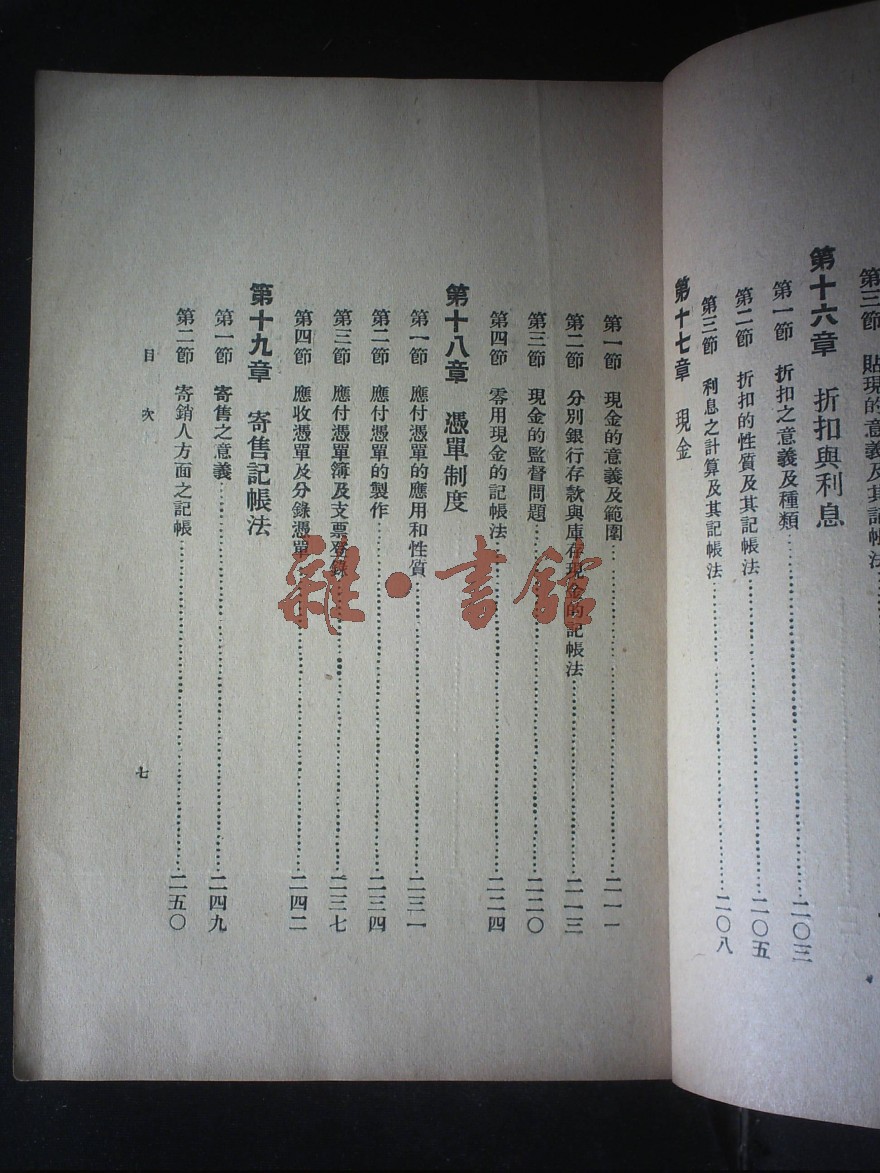 第三節 貼現的意義及其記帳法
第十六章 折扣與利息
第一節 折扣之意義及種類……二〇三
第二節 折扣的性質及其記帳法……二〇五
第三節 利息之計算及其記帳法……二〇八
第十七章 現金
第一節 現金的意義及範圍……二一一
第二節 分別銀行存款與庫存現金的記帳法……二一三
第三節 現金的監督問題……二二〇
第四節 零用現金的記帳法……二二四
第十八章 憑單制度
第一節 應付憑單的應用和性質……二三一
第二節 應付憑單的製作……二三四
第三節 應付憑單簿及支票登錄……二三七
第四節 應收憑單及分錄憑單……二四二
第十九章 寄售記帳法
第一節 寄售之意義……二四九
第二節 寄銷人方面之記帳……二五〇
目次
七
雜·書館